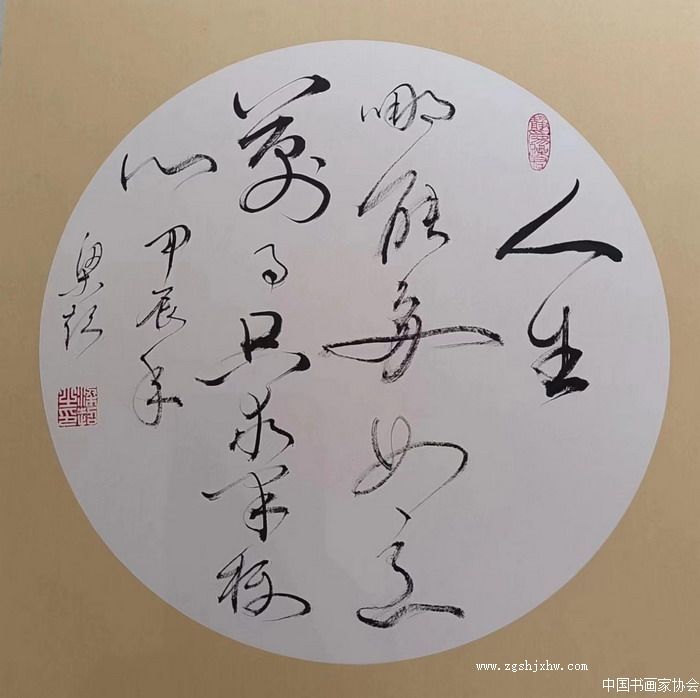 人生
哪能每如意
萬事只求半称
心 甲辰年
梁
www.zgshjxhw.com
中国书画家协会